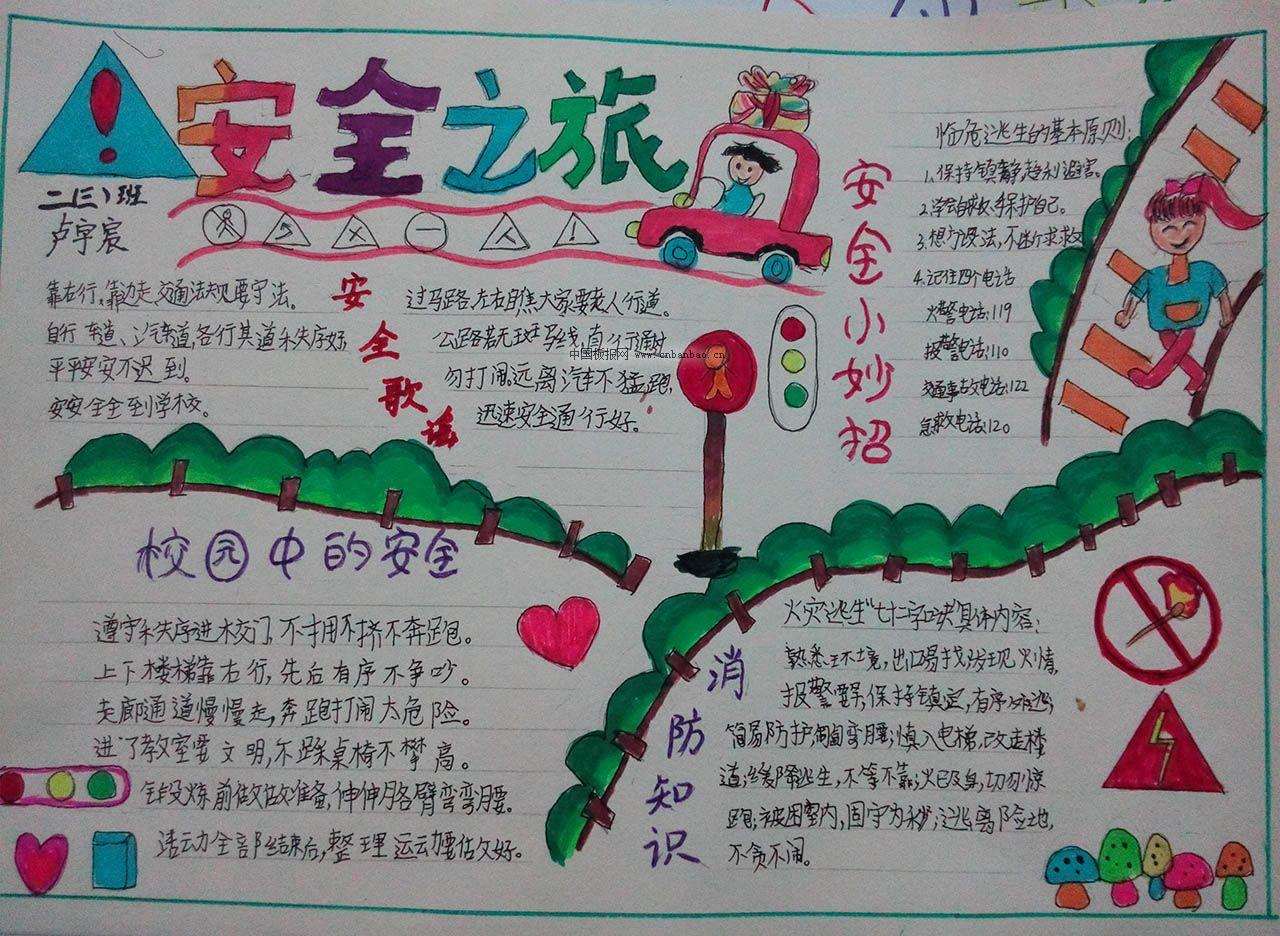 安全之旅
二(三)班
卢宇宸
靠右行,靠边走,交通法规要守法。
自行车道、汽车道,各行其道秩序好
平平安安不迟到。
安安全全到学校。
安全歌谣
过马路,左右瞧,大家要走人行道。
公路若无斑马线,直行通过
勿打闹,远离汽车不猛跑,
迅速安全通行好。
中国板报网 www.cnbanbao.cn
安全小妙招
临危逃生的基本原则:
1.保持镇静趋利避害。
2.学会自救,保护自己。
3.想方设法,不断求救
4.记住四个电话
火警电话:119
报警电话:110
交通事故电话:122
急救电话:120
校园中的安全
遵守秩序进校门,不拥不挤不奔跑。
上下楼梯靠右行,先后有序不争吵。
走廊通道慢慢走,奔跑打闹太危险。
进了教室要文明,不踩桌椅不攀高。
锻炼前做做准备,伸伸胳臂弯弯腰。
活动全部结束后,整理运动要做好。
消防知识
火灾逃生"七十二字口诀"具体内容:
熟悉环境,出口易找;发现火情,
报警要早,保持镇定,有序外逃;
简易防护,匍匐弯腰;慎入电梯,改走楼
道;缓降逃生,不等不靠;火已及身,切勿惊
跑;被困室内,固守为妙;逃离险地,
不贪不闹。